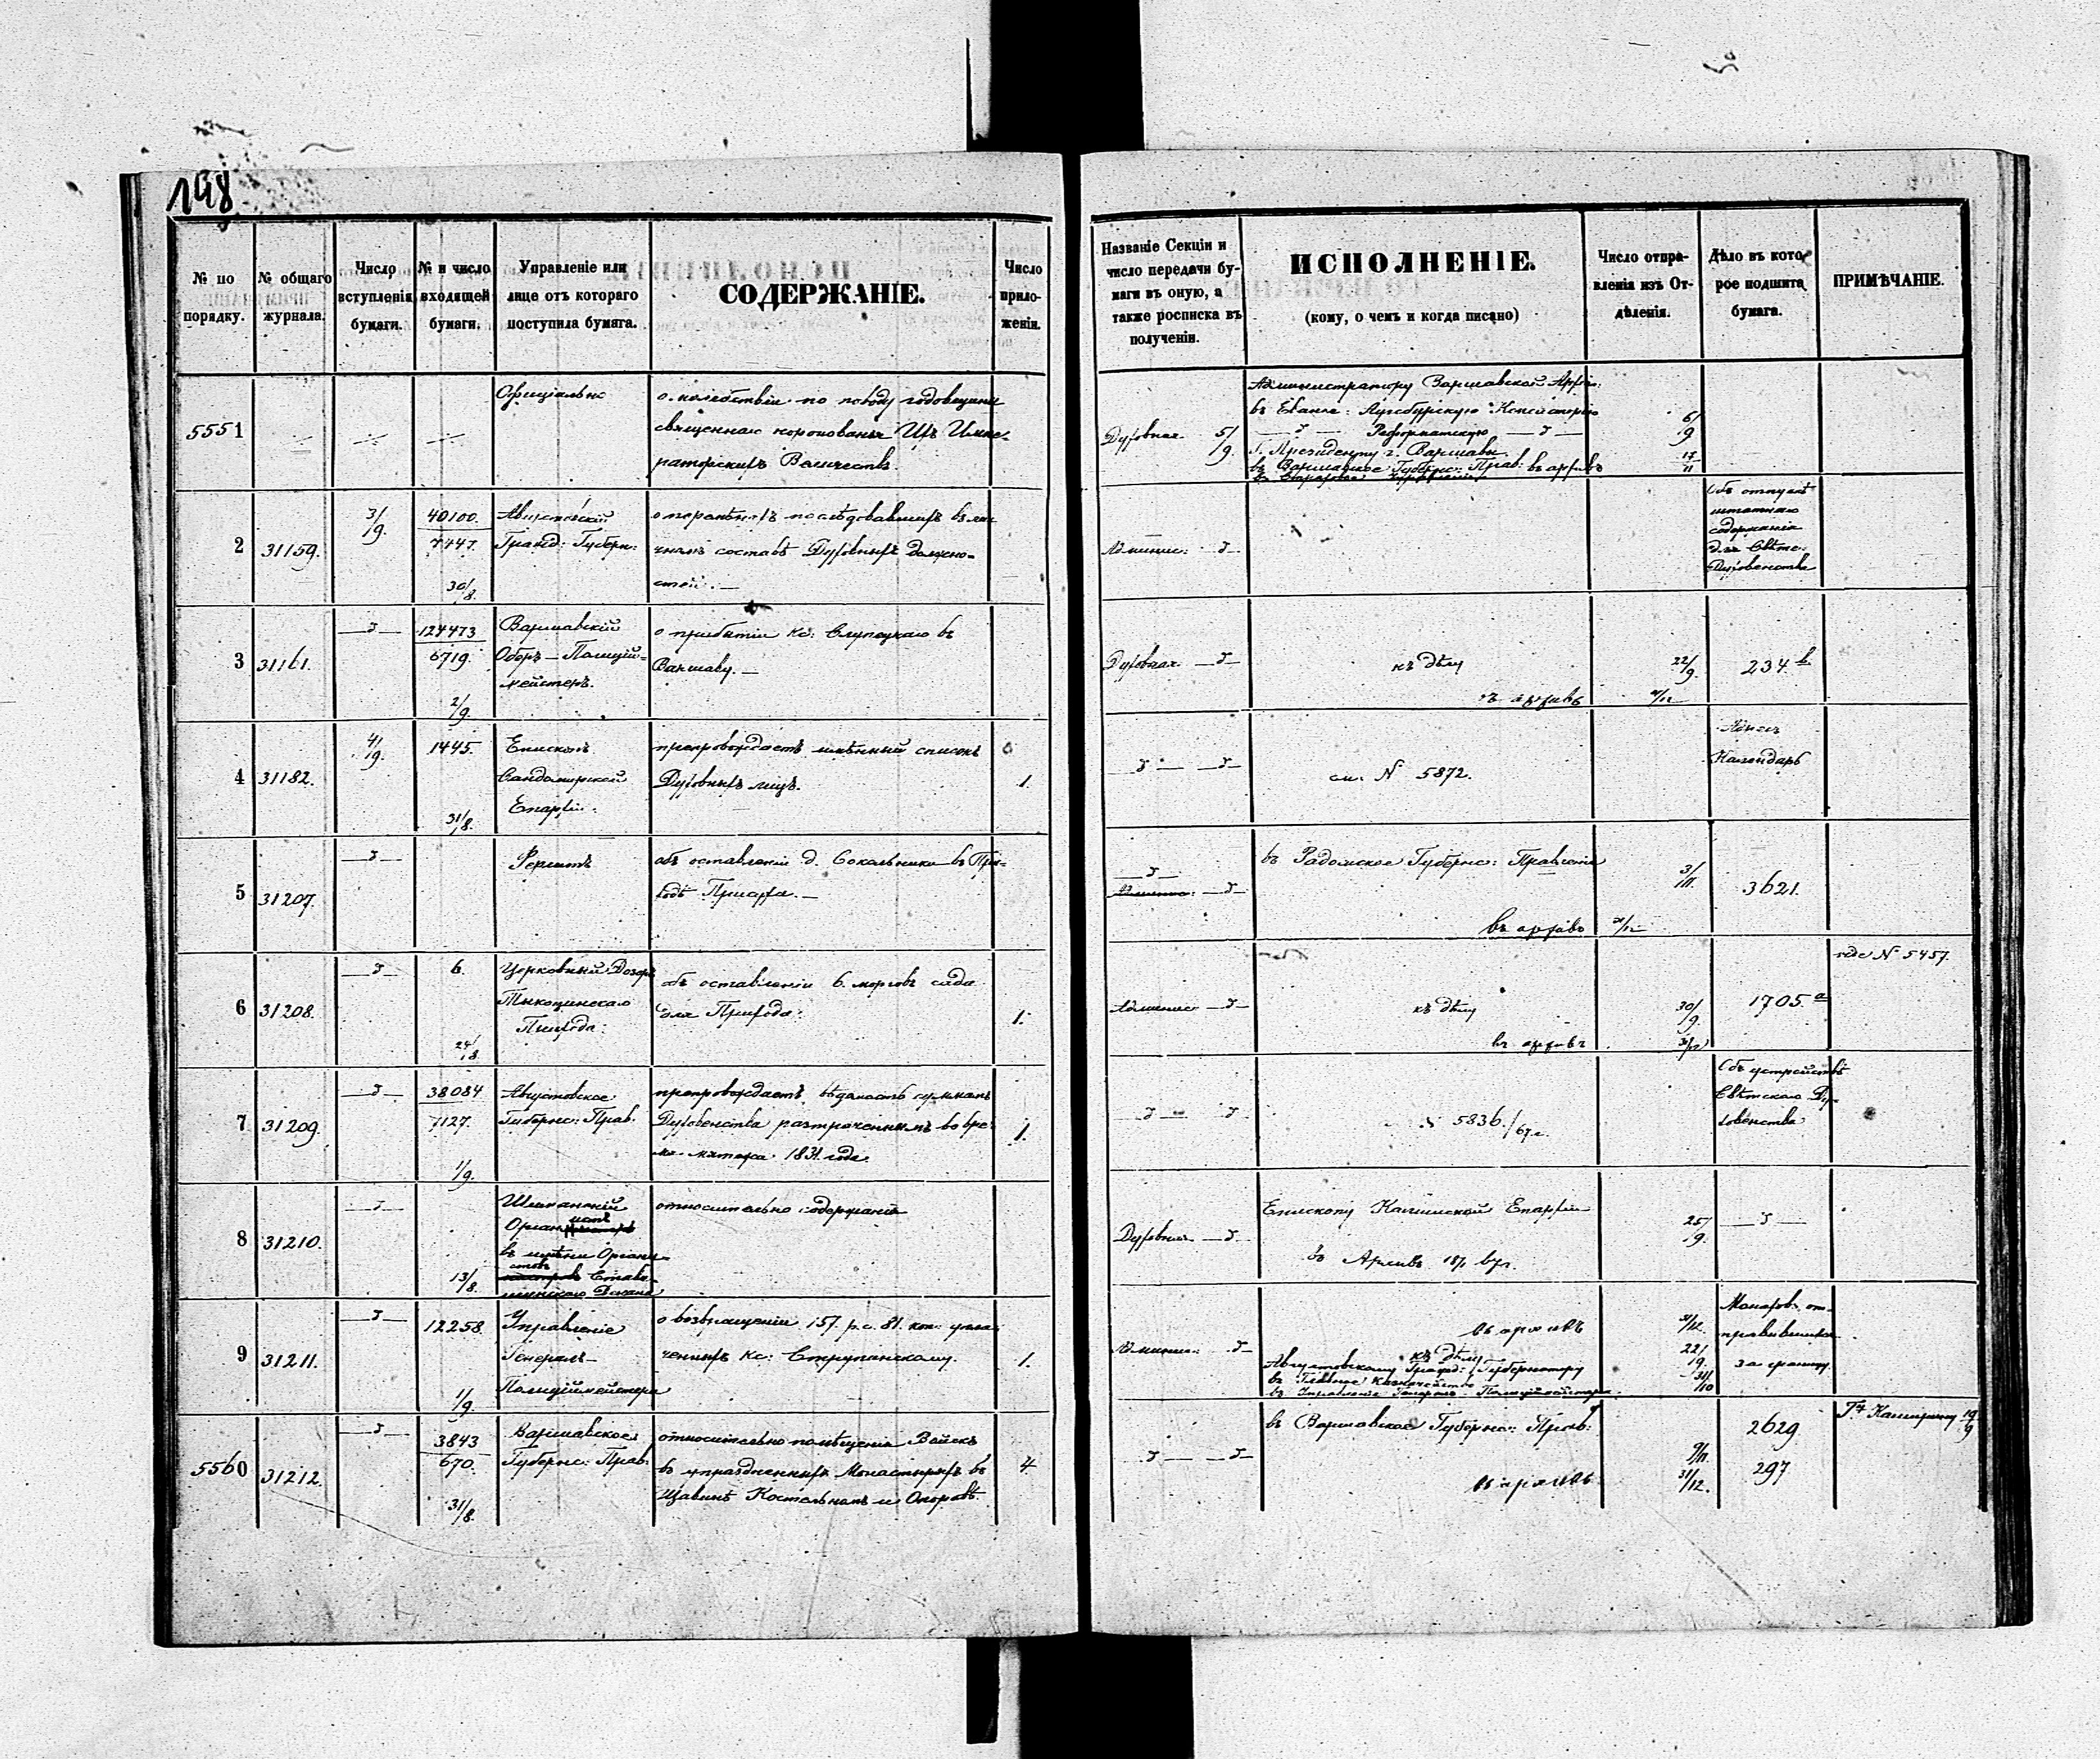 198
№ по порядку.
№ общаго журнала.
Число вступленія бумаги.
№ и число входящей бумаги.
Управленіе или лице отъ котораго поступила бумага.
СОДЕРЖАНІЕ.
Число приложеніи.
Названіе Секціи и число передачи бумаги въ оную, а также росписка въ полученіи.
ИСПОЛНЕНІЕ.
(кому, о чемъ и когда писано)
Число отправленія изъ Отдѣленія.
Дѣло въ которое подшита бумага.
ПРИМѢЧАНІЕ.
5551
Офиціально
о молебствіи по поводу годовщины
священнаго коронованія Ихъ Импе-
раторскихъ Величествъ.
Духовная 5/9
Администратору Варшавской Архіе:
въ Еванге: Аугсбургскую Консисторію
Реформатскую
Г. Президенту г. Варшавы
въ Варшавское Губернс: Прав: въ архивъ
6/9
17/11
2
31159.
3/9.
40100.
7447.
30/8.
Августовскій
Гражд: Губерн:
о перемѣнахъ послѣдовавшихъ въ лич
номъ составѣ Духовныхъ должно-
стей. —
Админис:
Объ отпускѣ
штатнаго
содержанія
для Свѣтс:
Духовенства
3
31161.
124473
6719.
2/9.
Варшавскій
Оберъ-Полицій-
мейстеръ.
о прибытіи Кс: Слупецкаго въ
Варшаву. —
Духовная
къ дѣлу
въ архивъ
22/9.
31/12
234 b
4
31182.
4/9.
1445.
31/8.
Епископъ
Сандомирской
Епархіи.
препровождаетъ имѣнный списокъ
Духовныхъ лицъ.
1.
см. N 5872.
Адресъ
Календарь
5
31207.
объ оставленіи д. Сокольники въ При-
ходѣ
въ Радомское Губернс: Правленіе
въ архивъ
3/11.
31/12
3621.
6
31208.
6.
24/8
Церковный Дозоръ
Тыкоцинскаго
Прихода:
объ оставленіи 6. морговъ сада
для Прихода:
1.
Админис
къ дѣлу
въ архивъ
30/9.
31/12
1705. a
N 5457.
7
31209.
38084
7127.
1/9.
Августовское
Губернс: Прав.
препровождаетъ вѣдомость суммамъ
Духовенства растраченнымъ во вре-
мя мятежа 1831 года.
1.
5836./67 г.
Объ устройствѣ
Свѣтскаго Ду-
ховенства
8
31210.
13/8.
Органистъ
въ имени Органи-
стовъ
относительно содержанія
Духовная
Епископу Калишской Епархіи
въ Архивъ
25/9.
9
31211.
12258.
1/9.
Управленіе
Генералъ-
Полиціймейстера
о возвращеніи 157. р. с. 81. коп: упла
ченныхъ Кс:
1.
Админис:
въ архивъ
къ дѣлу
Августовскому Гражд: Губернатору
въ Главное Казначейство
въ Управленіе Генералъ-Полиціймейстера.
31/12.
22/9.
31/10
Монаховъ от-
правившихся
за границу.
5560
31212.
3843
670.
31/8.
Варшавское
Губернс: Прав.
относительно помѣщенія Войскъ
въ упраздненныхъ Монастыряхъ въ
Щавинѣ Костельномъ и Опоровѣ.
4.
въ Варшавское Губернс: Прав:
въ архивъ
9/11.
31/12.
2629
297
19/9